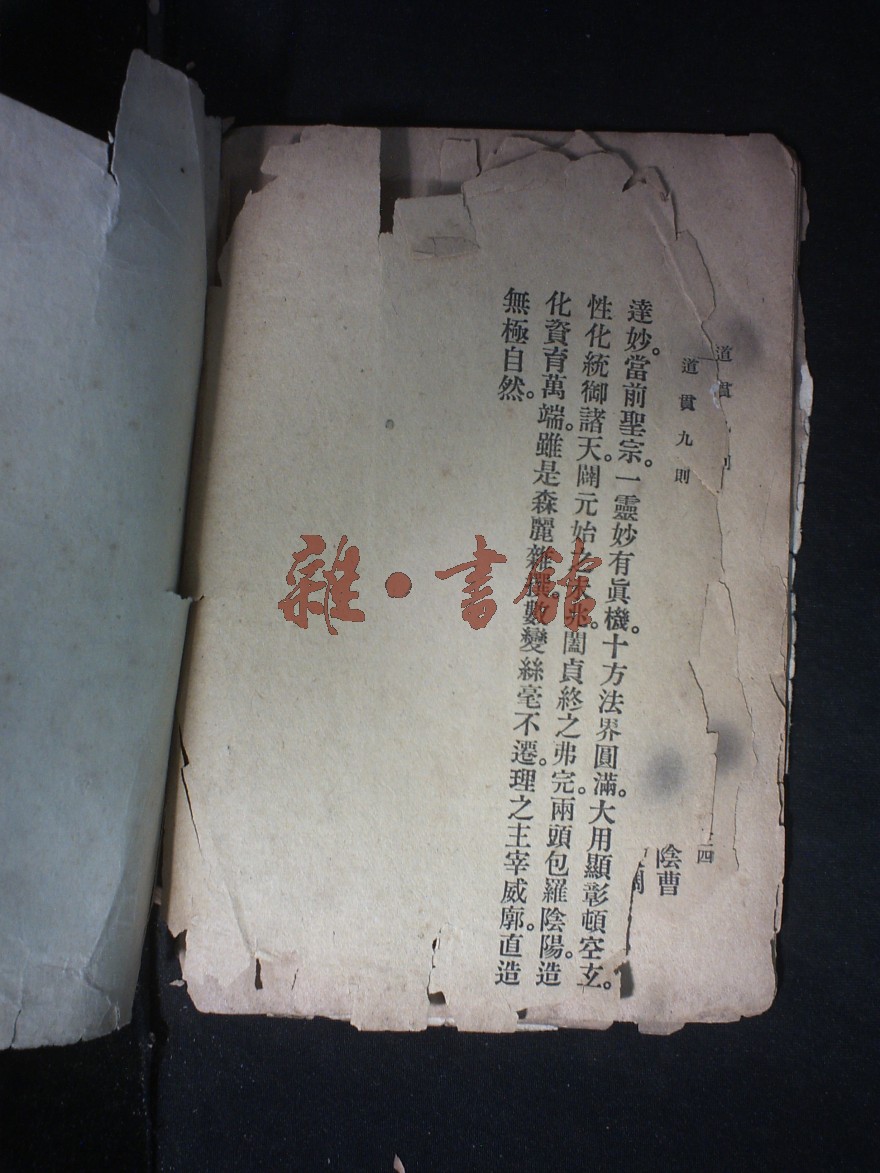 道貫
道貫九則
四
陰曹
達妙。當前聖宗。一靈妙有眞機。十方法界圓滿。大用顯彰頓空玄。
性化統御諸天。闢元始之未兆。闔貞終之弗完。兩頭包羅陰陽。造
化資育萬端。雖是森麗雜撰。數變絲毫不遷。理之主宰威廓。直造
無極自然。
雜·書館